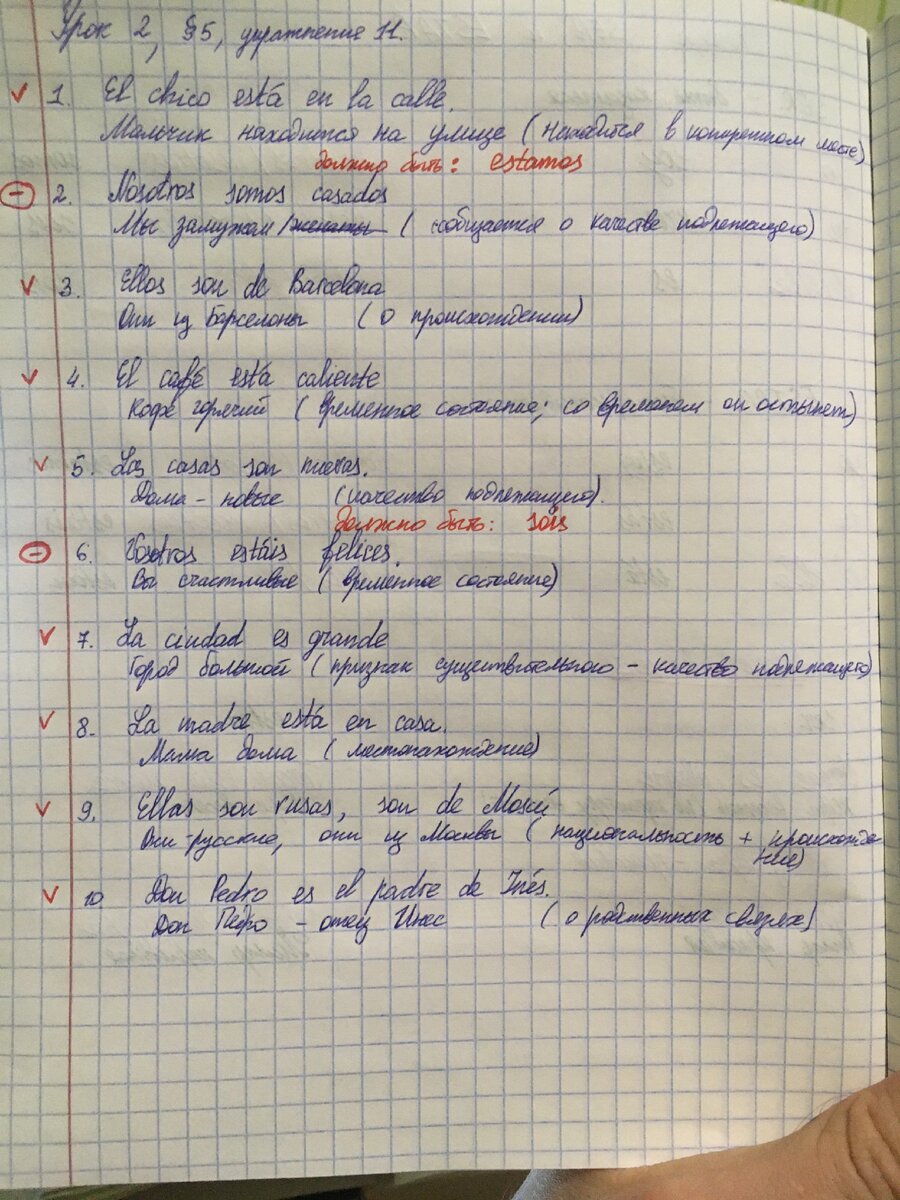 Урок 2, §5, упражнение 11.
✓ 1. El chico está en la calle.
Мальчик находится на улице (находится в конкретном месте)
должно быть: estamos
- 2. Nosotros somos casados
Мы замужем /женаты (сообщается о качестве подлежащего)
✓ 3. Ellos son de Barcelona
Они из Барселоны (о происхождении)
✓ 4. El café está caliente
Кофе горячий (временное состояние; со временем он остынет)
✓ 5. Las casas son nuevas.
Дома - новые (качество подлежащего).
должно быть: sois
- 6. Vosotros estáis felices.
Вы счастливые (временное состояние)
✓ 7. La ciudad es grande
Город большой (признак существительного - качество подлежащего)
✓ 8. La madre está en casa.
Мама дома (местонахождение)
✓ 9. Ellas son rusas, son de Moscú
Они русские, они из Москвы (национальность + происхожде
ние)
✓ 10 Don Pedro es el padre de Inés.
Дон Педро - отец Инес (о родственных связях)